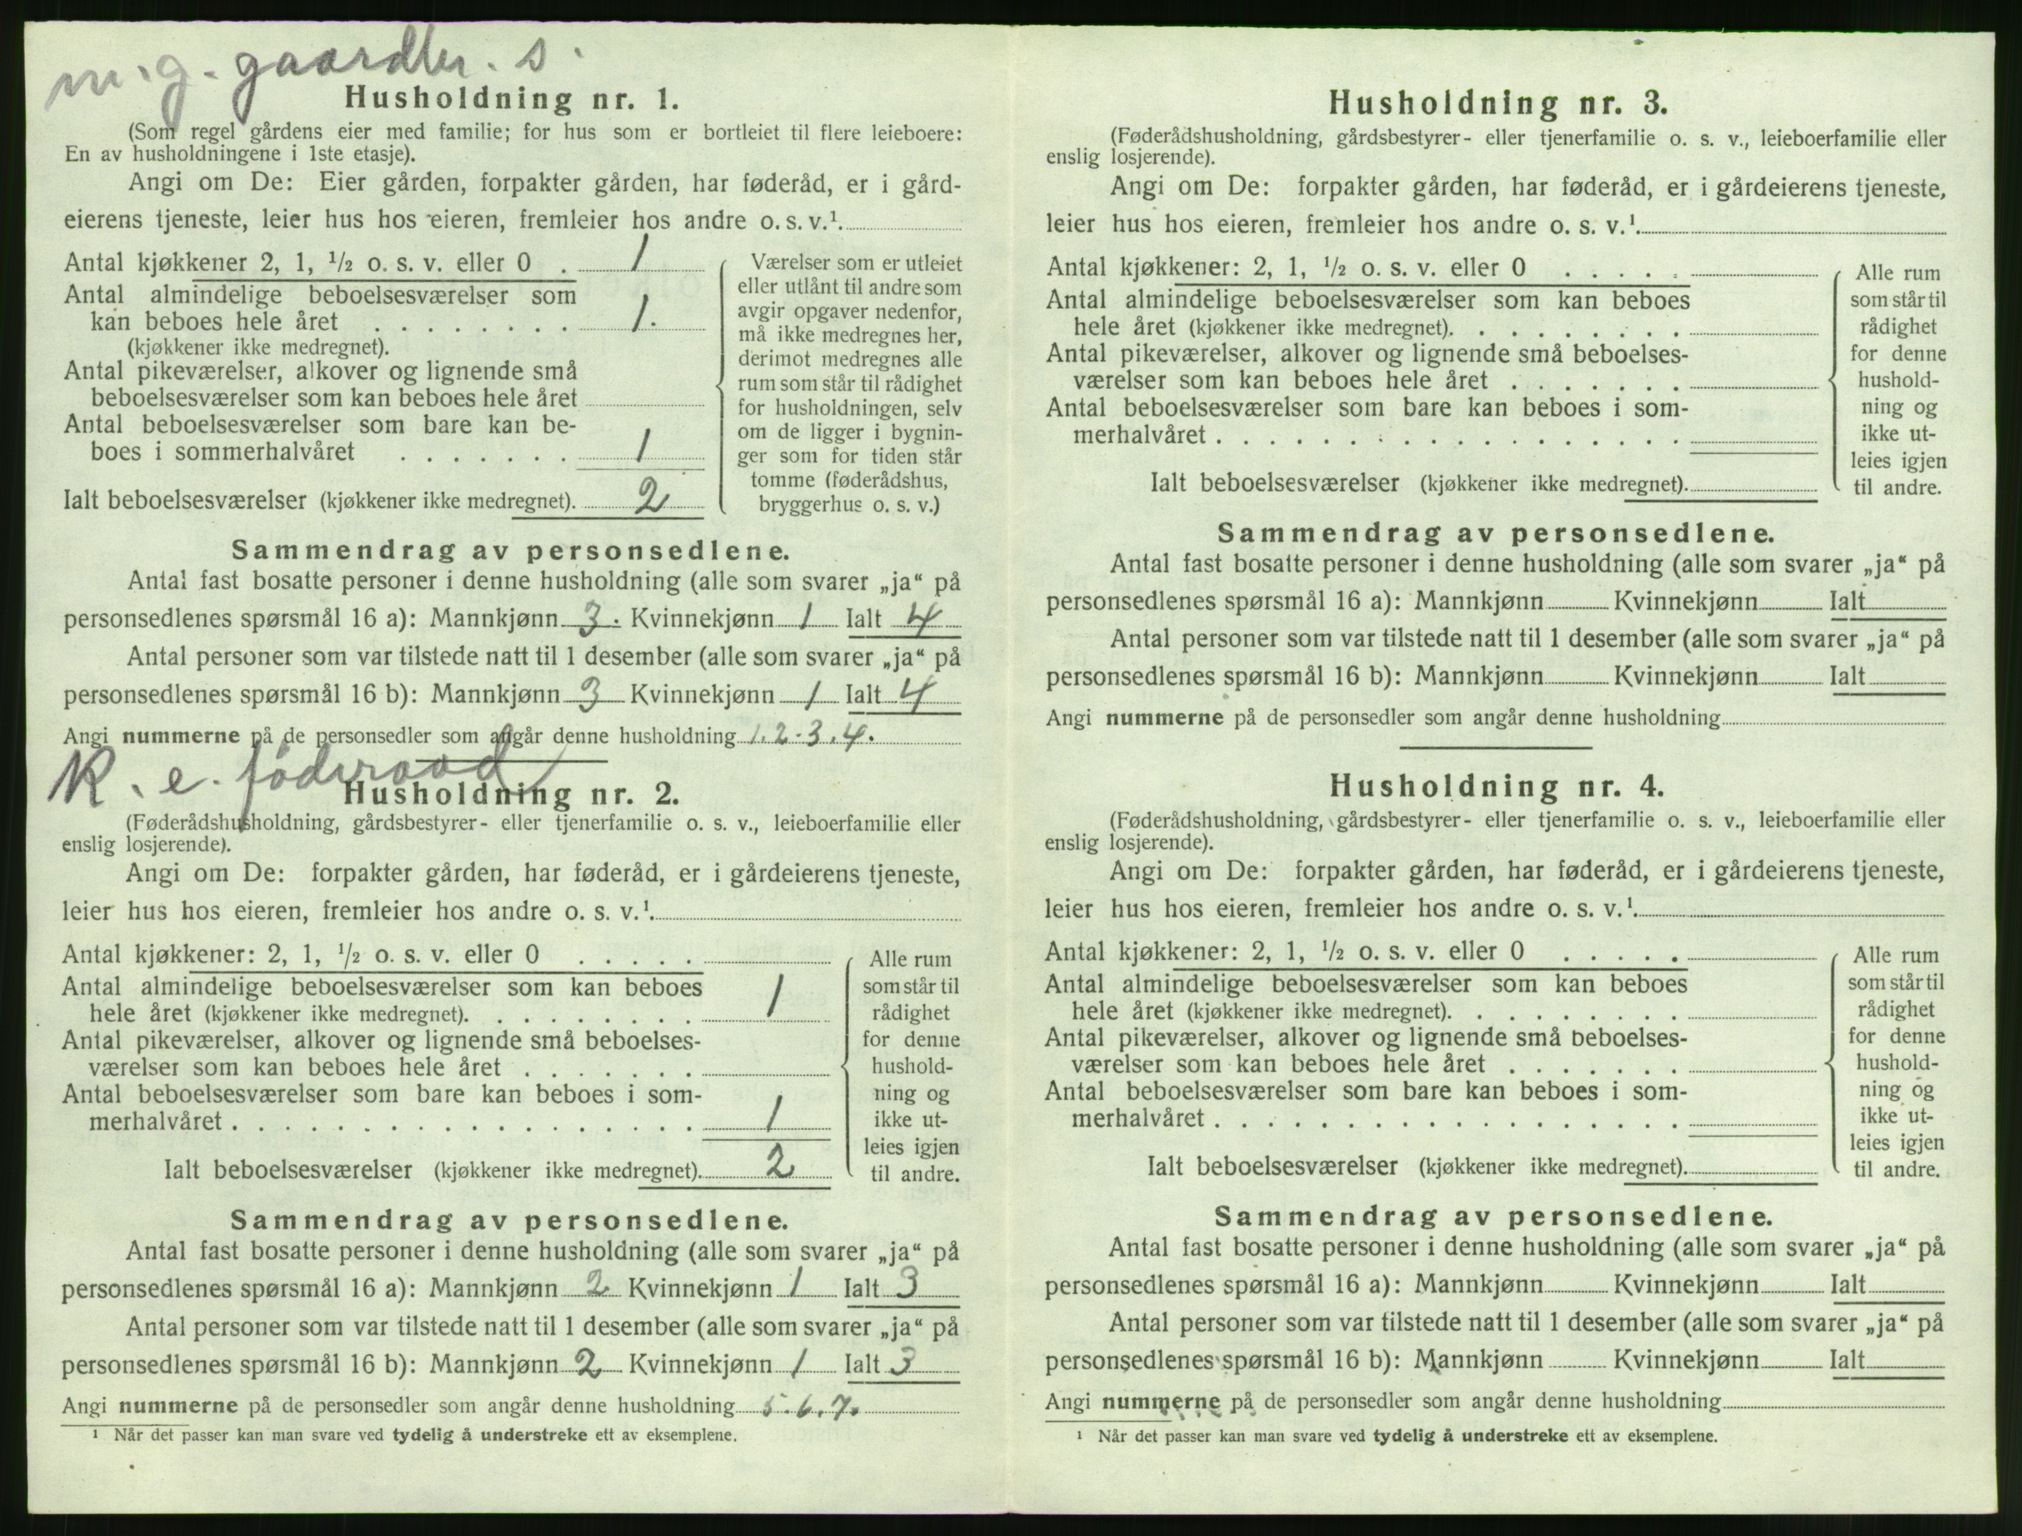 m. g. gaardbr. s.
Husholdning nr. 1.
(Som regel gårdens eier med familie; for hus som er bortleiet til flere leieboere:
En av husholdningene i 1ste etasje).
Angi om De: Eier gården, forpakter gården, har føderåd, er i gård-
eierens tjeneste, leier hus hos eieren, fremleier hos andre o. s. v.¹
Antal kjøkkener 2, 1, ½ o. s. v. eller 0 . 1
Antal almindelige beboelsesværelser som
kan beboes hele året . . . . . . . . 1.
(kjøkkener ikke medregnet).
Antal pikeværelser, alkover og lignende små
beboelsesværelser som kan beboes hele året
Antal beboelsesværelser som bare kan be-
boes i sommerhalvåret . . . . . . . 1
Ialt beboelsesværelser (kjøkkener ikke medregnet). 2
Værelser som er utleiet
eller utlånt til andre som
avgir opgaver nedenfor,
må ikke medregnes her,
derimot medregnes alle
rum som står til rådighet
for husholdningen, selv
om de ligger i bygnin-
ger som for tiden står
tomme (føderådshus,
bryggerhus o. s. v.)
Sammendrag av personsedlene.
Antal fast bosatte personer i denne husholdning (alle som svarer „ja“ på
personsedlenes spørsmål 16 a): Mannkjønn 3. Kvinnekjønn 1 Ialt 4
Antal personer som var tilstede natt til 1 desember (alle som svarer „ja“ på
personsedlenes spørsmål 16 b): Mannkjønn 3 Kvinnekjønn 1 Ialt 4
Angi nummerne på de personsedler som angår denne husholdning 1.2.3.4.
K. e. föderaad
Husholdning nr. 2.
(Føderådshusholdning, gårdsbestyrer- eller tjenerfamilie o. s. v., leieboerfamilie eller
enslig losjerende).
Angi om De: forpakter gården, har føderåd, er i gårdeierens tjeneste,
leier hus hos eieren, fremleier hos andre o. s. v.¹
Antal kjøkkener: 2, 1, ½ o. s. v. eller 0 . . . . .
Antal almindelige beboelsesværelser som kan beboes
hele året (kjøkkener ikke medregnet). . . . . . . . . 1
Antal pikeværelser, alkover og lignende små beboelses-
værelser som kan beboes hele året . . . . . . .
Antal beboelsesværelser som bare kan beboes i som-
merhalvåret . . . . . . . . . . . . . . . . . . 1
Ialt beboelsesværelser (kjøkkener ikke medregnet). 2
Alle rum
som står til
rådighet
for denne
hushold-
ning og
ikke ut-
leies igjen
til andre.
Sammendrag av personsedlene.
Antal fast bosatte personer i denne husholdning (alle som svarer „ja“ på
personsedlenes spørsmål 16 a): Mannkjønn 2 Kvinnekjønn 1 Ialt 3
Antal personer som var tilstede natt til 1 desember (alle som svarer „ja“ på
personsedlenes spørsmål 16 b): Mannkjønn 2 Kvinnekjønn 1 Ialt 3
Angi nummerne på de personsedler som angår denne husholdning 5.6.7.
¹ Når det passer kan man svare ved tydelig å understreke ett av eksemplene.
Husholdning nr. 3.
(Føderådshusholdning, gårdsbestyrer- eller tjenerfamilie o. s. v., leieboerfamilie eller
enslig losjerende).
Angi om De: forpakter gården, har føderåd, er i gårdeierens tjeneste,
leier hus hos eieren, fremleier hos andre o. s. v.¹
Antal kjøkkener: 2, 1, ½ o. s. v. eller 0 . . . . .
Antal almindelige beboelsesværelser som kan beboes
hele året (kjøkkener ikke medregnet). . . . . . . . .
Antal pikeværelser, alkover og lignende små beboelses-
værelser som kan beboes hele året . . . . . . .
Antal beboelsesværelser som bare kan beboes i som-
merhalvåret . . . . . . . . . . . . . . . . . .
Ialt beboelsesværelser (kjøkkener ikke medregnet).
Alle rum
som står til
rådighet
for denne
hushold-
ning og
ikke ut-
leies igjen
til andre.
Sammendrag av personsedlene.
Antal fast bosatte personer i denne husholdning (alle som svarer „ja“ på
personsedlenes spørsmål 16 a): Mannkjønn Kvinnekjønn Ialt
Antal personer som var tilstede natt til 1 desember (alle som svarer „ja“ på
personsedlenes spørsmål 16 b): Mannkjønn Kvinnekjønn Ialt
Angi nummerne på de personsedler som angår denne husholdning
Husholdning nr. 4.
(Føderådshusholdning, gårdsbestyrer- eller tjenerfamilie o. s. v., leieboerfamilie eller
enslig losjerende).
Angi om De: forpakter gården, har føderåd, er i gårdeierens tjeneste,
leier hus hos eieren, fremleier hos andre o. s. v.¹
Antal kjøkkener: 2, 1, ½ o. s. v. eller 0 . . . . .
Antal almindelige beboelsesværelser som kan beboes
hele året (kjøkkener ikke medregnet). . . . . . . . .
Antal pikeværelser, alkover og lignende små beboelses-
værelser som kan beboes hele året . . . . . . .
Antal beboelsesværelser som bare kan beboes i som-
merhalvåret . . . . . . . . . . . . . . . . . .
Ialt beboelsesværelser (kjøkkener ikke medregnet).
Alle rum
som står til
rådighet
for denne
hushold-
ning og
ikke ut-
leies igjen
til andre.
Sammendrag av personsedlene.
Antal fast bosatte personer i denne husholdning (alle som svarer „ja“ på
personsedlenes spørsmål 16 a): Mannkjønn Kvinnekjønn Ialt
Antal personer som var tilstede natt til 1 desember (alle som svarer „ja“ på
personsedlenes spørsmål 16 b): Mannkjønn Kvinnekjønn Ialt
Angi nummerne på de personsedler som angår denne husholdning
¹ Når det passer kan man svare ved tydelig å understreke ett av eksemplene.